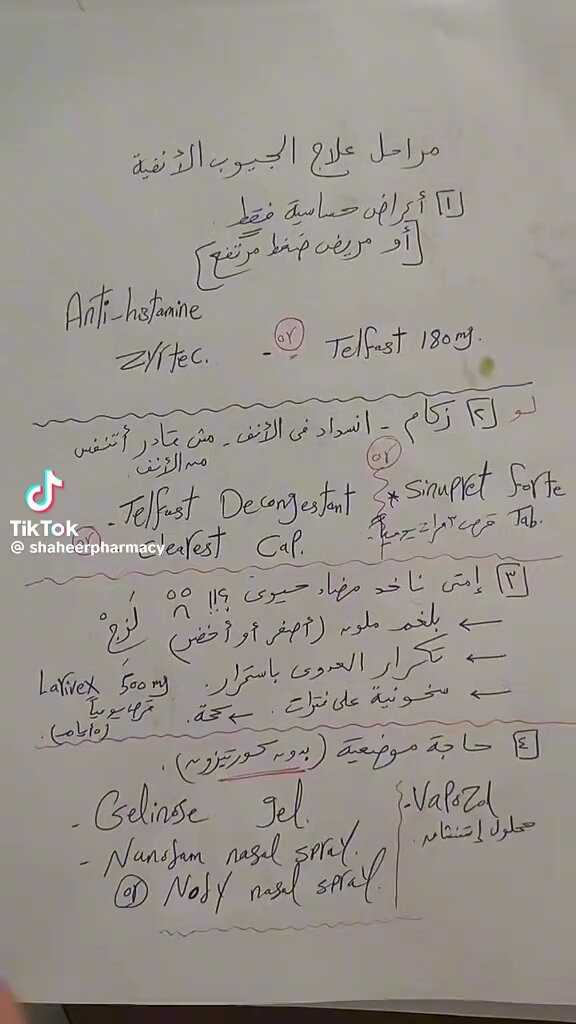 مراحل علاج الجيوب الأنفية
[١] أعراض حساسية فقط
[أو مريض ضغط مرتفع]
Anti-histamine
Zyrtec. - or Telfast 180 mg.
لو [٢] زكام - انسداد فى الأنف - مش قادر أتنفس
من الأنف.
- Telfast Decongestant
or Clearest Cap.
or
* Sinupret forte
Tab. قرص ٣ مرات يومياً
[٣] إمتى ناخد مضاد حيوى ؟!!
← بلغم ملون (أصفر أو أخضر) لَزِجْ
← تكرار العدوى باستمرار.
← سخونية على فترات. ← كحة.
Larivex 500 mg
قرص يومياً
[٤] حاجة موضعية (بدون كورتيزون).
- Gelinose gel.
- Nunofam nasal spray.
or Nosy nasal spray.
- Vapozol
محلول إستنشاق.
TikTok
@ shaheerpharmacy